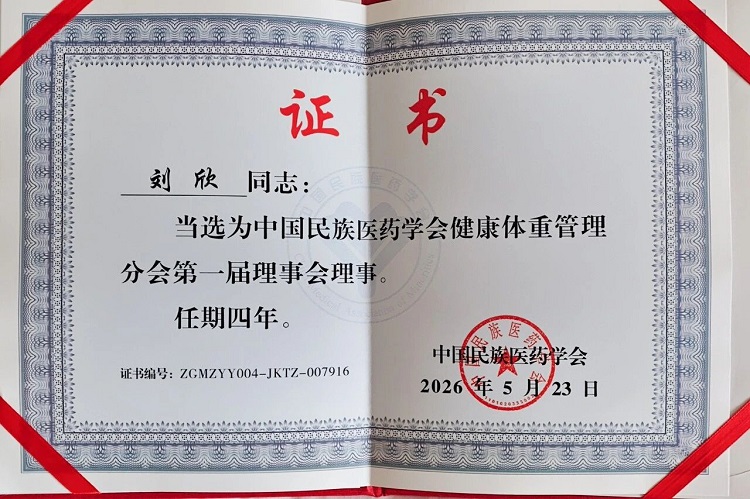 证书
刘欣 同志：
当选为中国民族医药学会健康体重管理
分会第一届理事会理事。
任期四年。
证书编号：ZGMZYY004-JKTZ-007916
中国民族医药学会
2026 年 5 月 23 日
中国民族医药学会